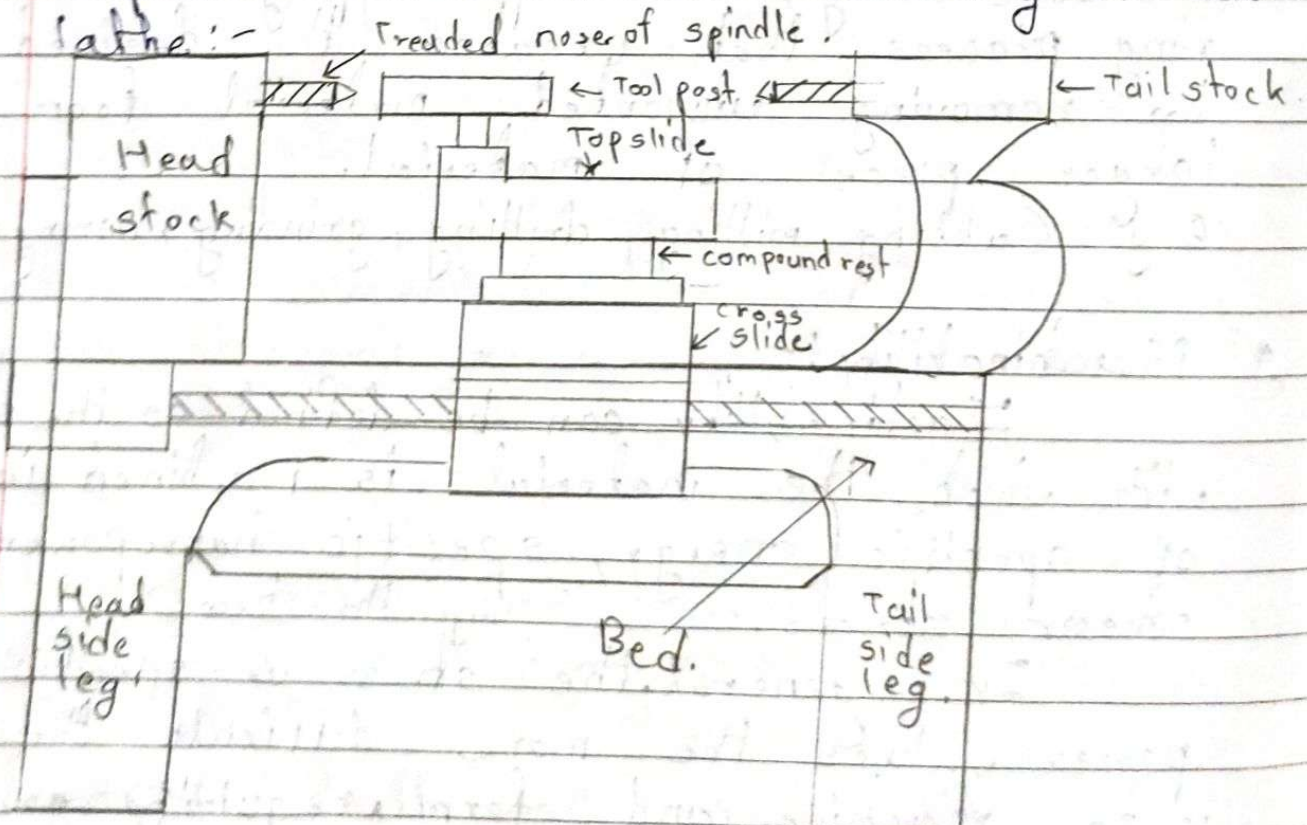 lathe :-
Treaded noser of spindle.
← Tool post.
← Tail stock
Top slide
Head
stock
← compound rest
cross
slide
Head
side
leg
Bed.
Tail
side
leg.